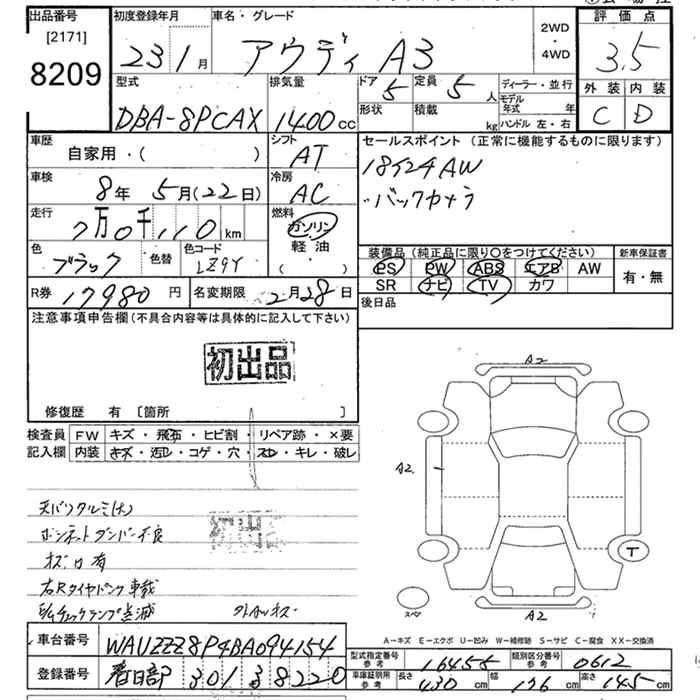 出品番号
[2171]
8209
初度登録年月
23 1 月
車名・グレード
アウディ A3
2WD
・
4WD
評価点
3.5
外装 内装
C D
型式
DBA-8PCAX
排気量
1400 cc
ドア 5
形状
定員 5 人
積載 kg
ディーラー・並行
モデル年式 年
ハンドル 左・右
車歴
自家用・( )
シフト
AT
セールスポイント (正常に機能するものに限ります)
18インチAW
バックカメラ
車検
8年 5月(22日)
冷房
AC
走行
7万0千110 km
燃料
ガソリン
軽油
( )
色
ブラック
色替
色コード
LZ9Y
装備品 (純正品に限り○をつけてください)
PS PW ABS エアB AW
SR ナビ TV カワ
新車保証書
有・無
R券 17980 円
名変期限 2月28日
後日品
注意事項申告欄(不具合内容等は具体的に記入して下さい)
初出品
修復歴 有 [箇所 ]
検査員
記入欄
FW キズ・飛石・ヒビ割・リペア跡・×要
内装 キズ・汚レ・コゲ・穴・スレ・キレ・破レ
天バリタルミ(大)
ボンネットダンパー不良
ネズロ有
右Rタイヤパンク 車載
初出品
A2
A2
A2
T
スペア
A-キズ E-エクボ U-凹み W-補修跡 S-サビ C-腐食 XX-交換済
車台番号 WAUZZZ8P4BA094154
登録番号 春日部 301 38220
型式指定番号 参考 16455
類別区分番号 参考 0612
車庫証明用 参考 長さ 430 cm 幅 176 cm 高さ 145 cm